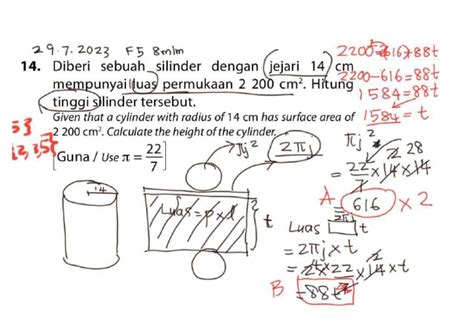 29.7.2023 F5 8mlm
14. Diberi sebuah silinder dengan jejari 14 cm
mempunyai luas permukaan 2 200 cm². Hitung
tinggi silinder tersebut.
Given that a cylinder with radius of 14 cm has surface area of
2 200 cm². Calculate the height of the cylinder.
[Guna / Use π = 22/7]
2200-616=88t
1584=88t
πj²
2πj
πj²
22/7 × 14 × 14
2 28
A = 616 × 2
14
Luas = p × l
t
Luas
2πj
t
= 2πj × t
B = 88t